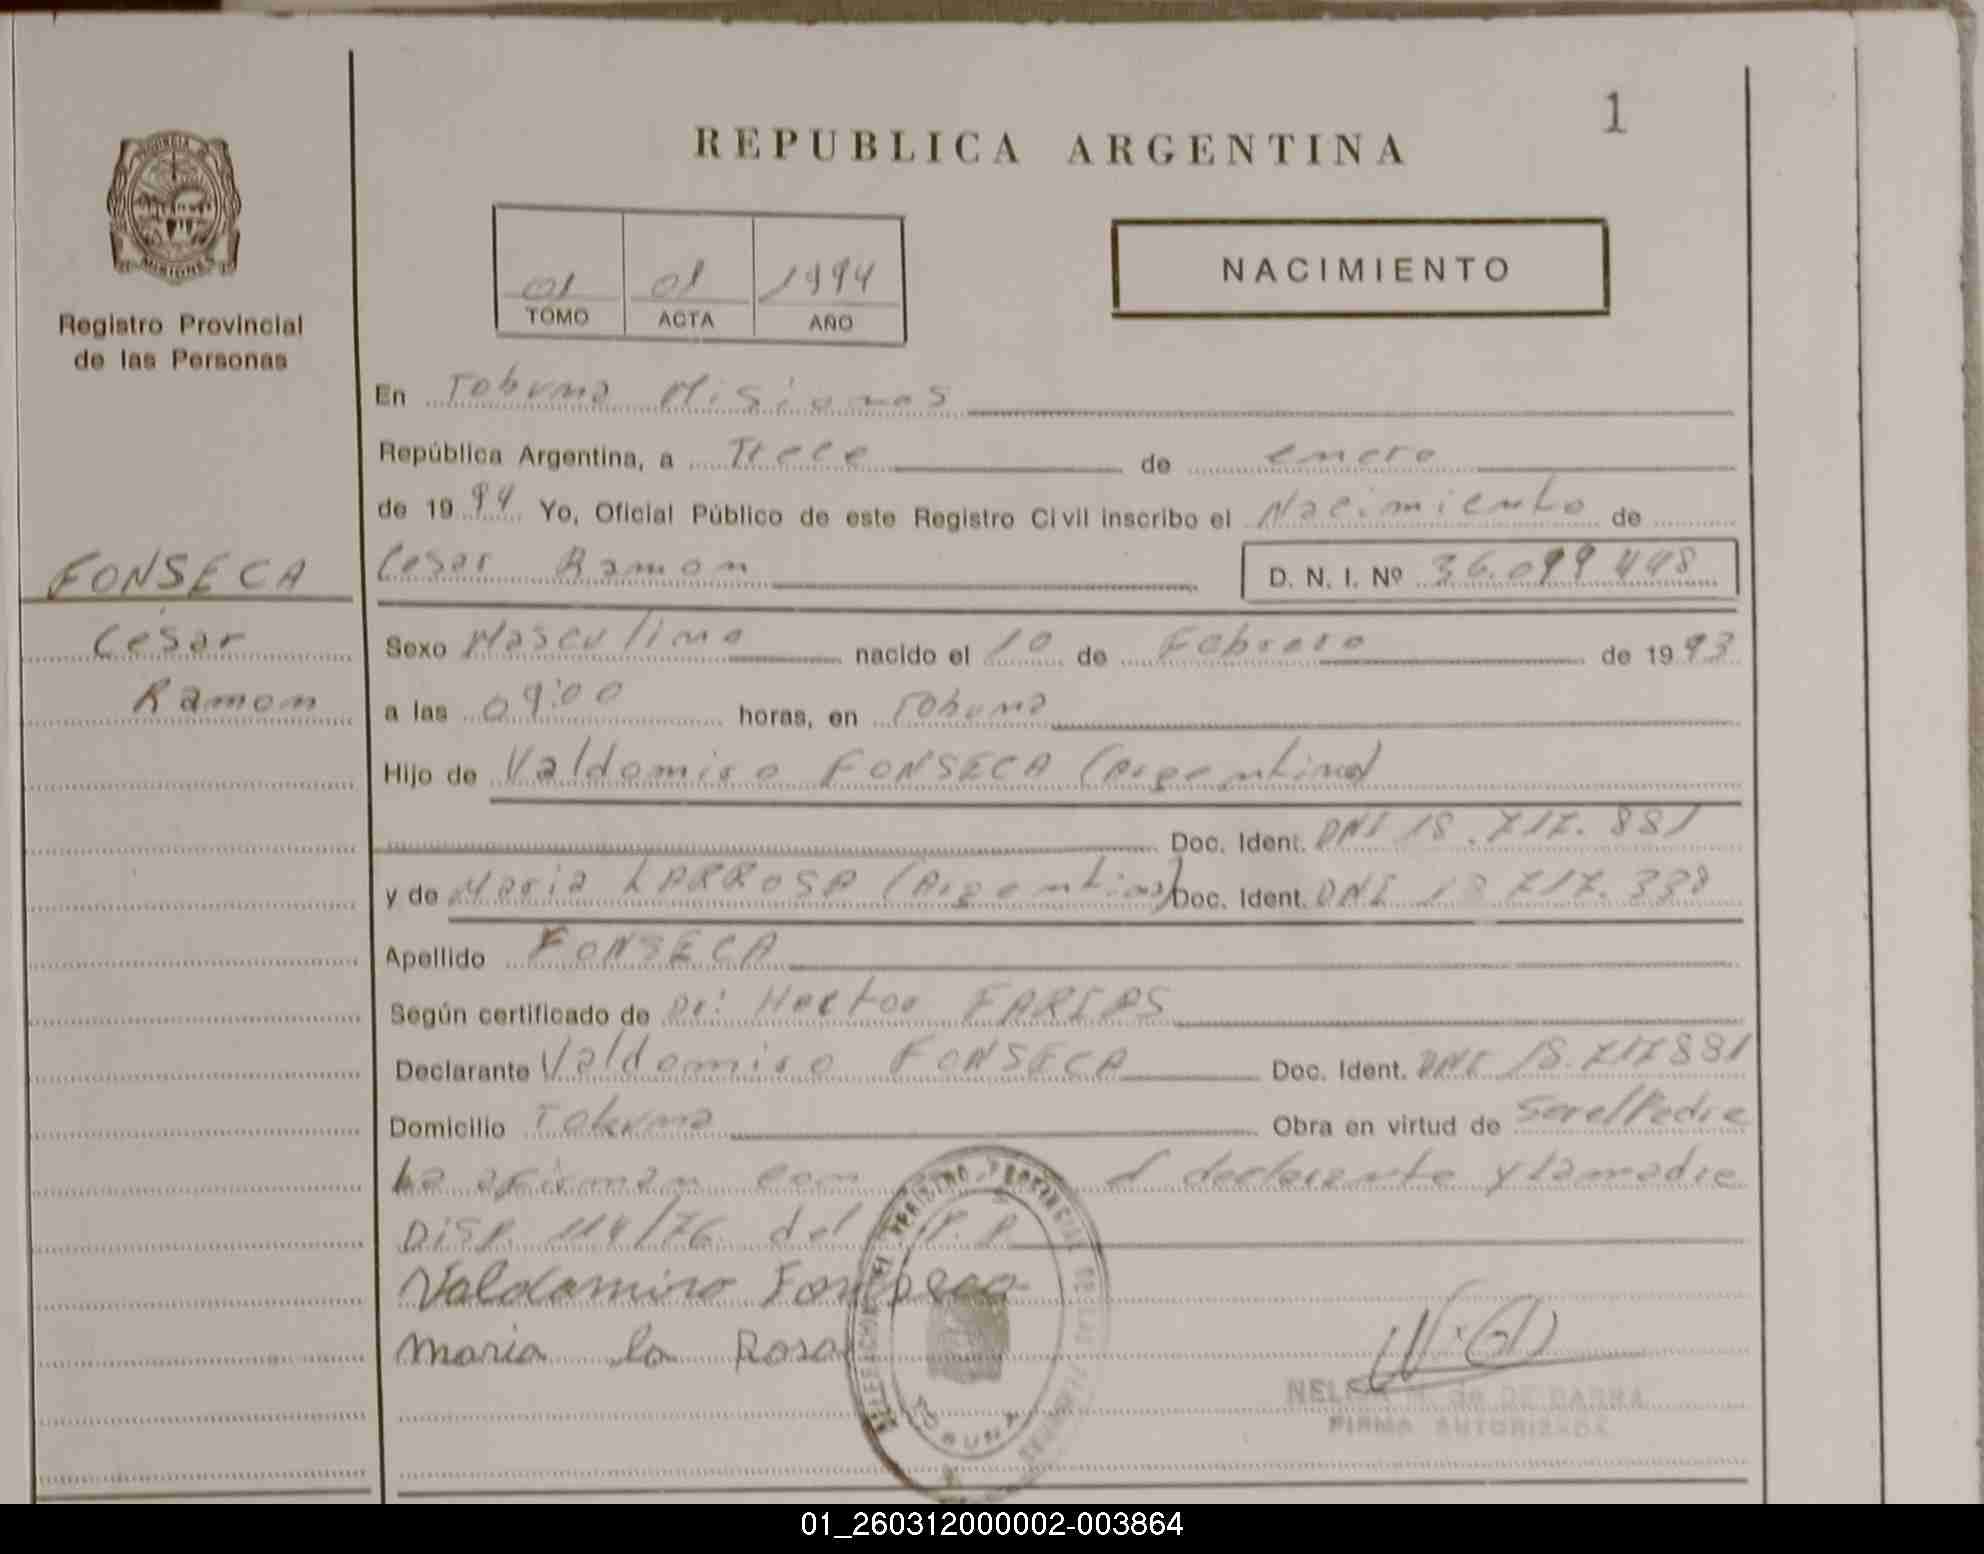 1
REPUBLICA ARGENTINA
PROVINCIA DE
MISIONES
Registro Provincial
de las Personas
01 01 1994
TOMO ACTA AÑO
NACIMIENTO
En Tobuna Misiones
República Argentina, a Trece de enero
de 1994 Yo, Oficial Público de este Registro Civil inscribo el Nacimiento de
FONSECA
Cesar Ramon D. N. I. Nº 36.099.448
Cesar
Sexo Masculino nacido el 10 de Febrero de 1993
Ramon
a las 09:00 horas, en Tobuna
Hijo de Valdomiro FONSECA (Argentino)
Doc. Ident. DNI 18.717.881
y de Maria LARROSA (Argentina) Doc. Ident. DNI 18.717.338
Apellido FONSECA
Según certificado de Dr: Hector FARIAS
Declarante Valdomiro FONSECA Doc. Ident. DNI 18.717881
Domicilio Tobuna Obra en virtud de Ser el Padre
La afirman con el declarante y la madre
DISP. 114/76 del R.P.P.
Valdomiro Fonseca
Maria la Rosa
REGISTRO PROVINCIAL DE LAS
TOBUNA
DE DE BARRA
FIRMA AUTORIZADA
01_260312000002-003864